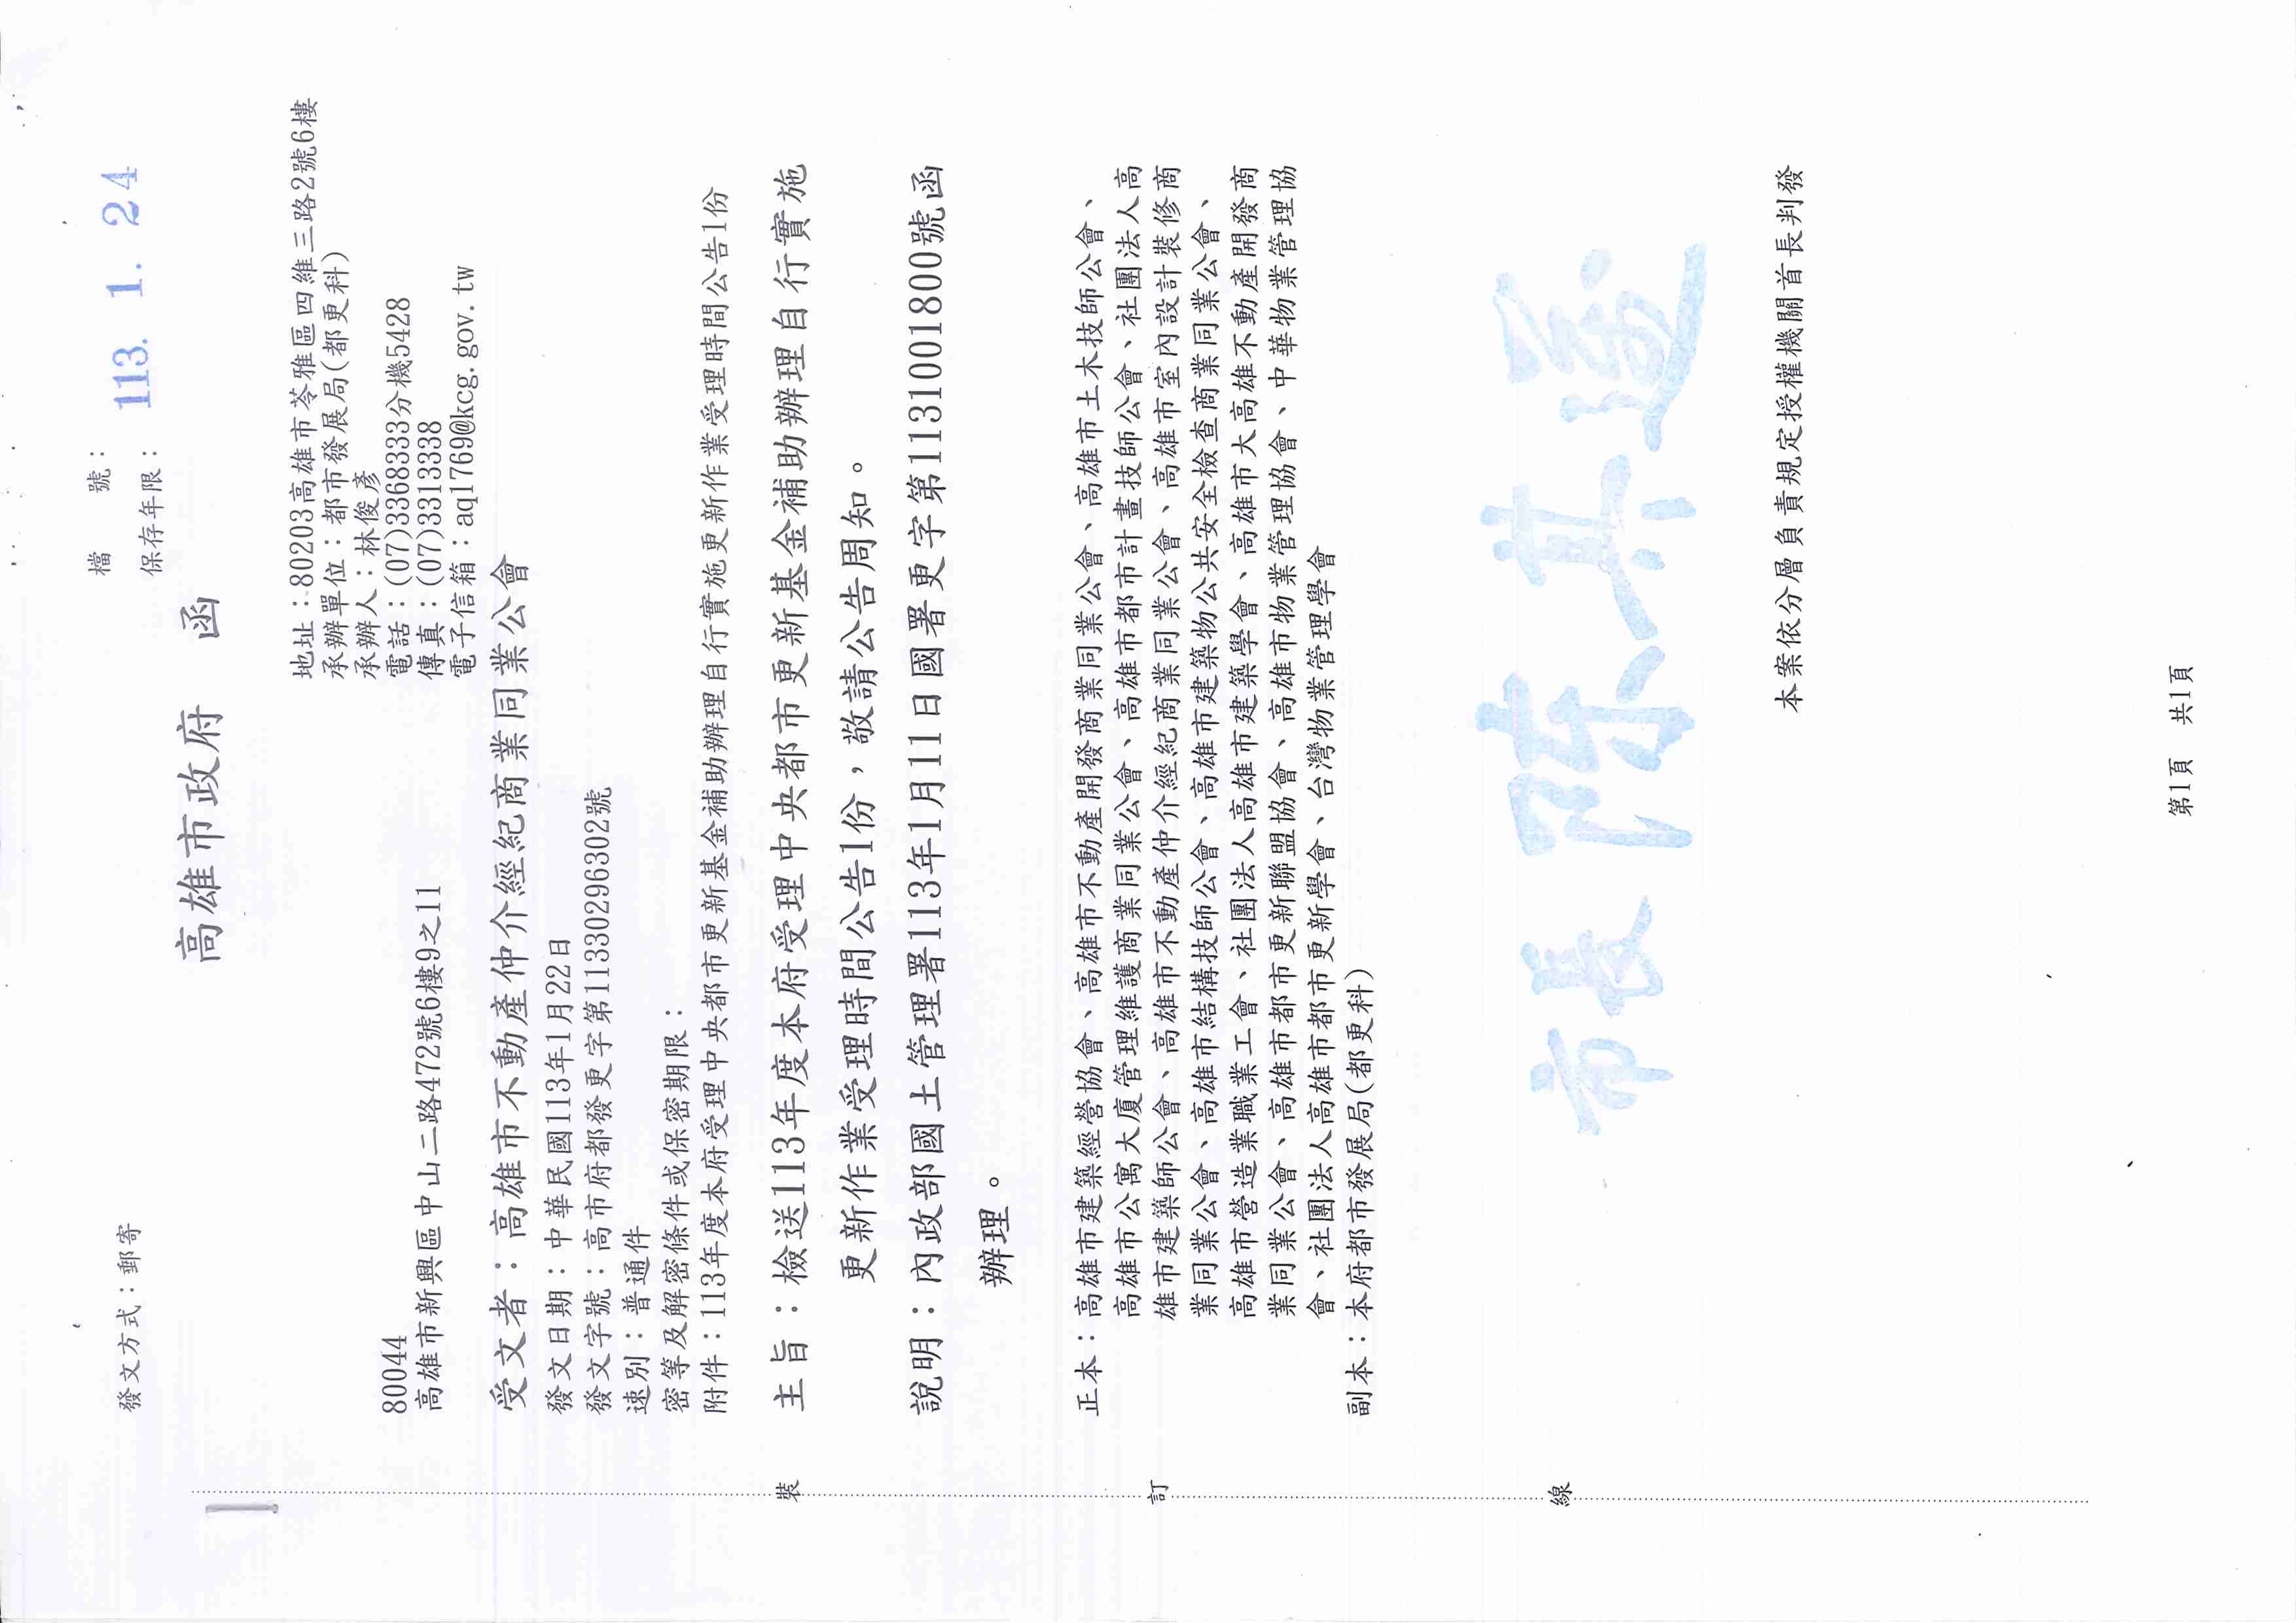 檔　　號：
保存年限：
113. 1. 24
發文方式：郵寄
高雄市政府　函
地址：80203高雄市苓雅區四維三路2號6樓
承辦單位：都市發展局(都更科)
承辦人：林俊彥
電話：(07)3368333分機5428
傳真：(07)3313338
電子信箱：aq1769@kcg.gov.tw
80044
高雄市新興區中山二路472號6樓9之11
受文者：高雄市不動產仲介經紀商業同業公會
發文日期：中華民國113年1月22日
發文字號：高市府都發更字第11330296302號
速別：普通件
密等及解密條件或保密期限：
附件：113年度本府受理中央都市更新基金補助辦理自行實施更新作業受理時間公告1份
主旨：檢送113年度本府受理中央都市更新基金補助辦理自行實施
更新作業受理時間公告1份，敬請公告周知。
說明：內政部國土管理署113年1月11日國署更字第1131001800號函
辦理。
正本：高雄市建築經營協會、高雄市不動產開發商業同業公會、高雄市土木技師公會、
高雄市公寓大廈管理維護商業同業公會、高雄市都市計畫技師公會、社團法人高
雄市建築師公會、高雄市不動產仲介經紀商業同業公會、高雄市室內設計裝修商
業同業公會、高雄市結構技師公會、高雄市建築物公共安全檢查商業同業公會、
高雄市營造業職業工會、社團法人高雄市建築學會、高雄市大高雄不動產開發商
業同業公會、高雄市都市更新聯盟協會、高雄市物業管理協會、中華物業管理協
會、社團法人高雄市都市更新學會、台灣物業管理學會
副本：本府都市發展局(都更科)
市長 陳其邁
本案依分層負責規定授權機關首長判發
裝
訂
線
第1頁　共1頁